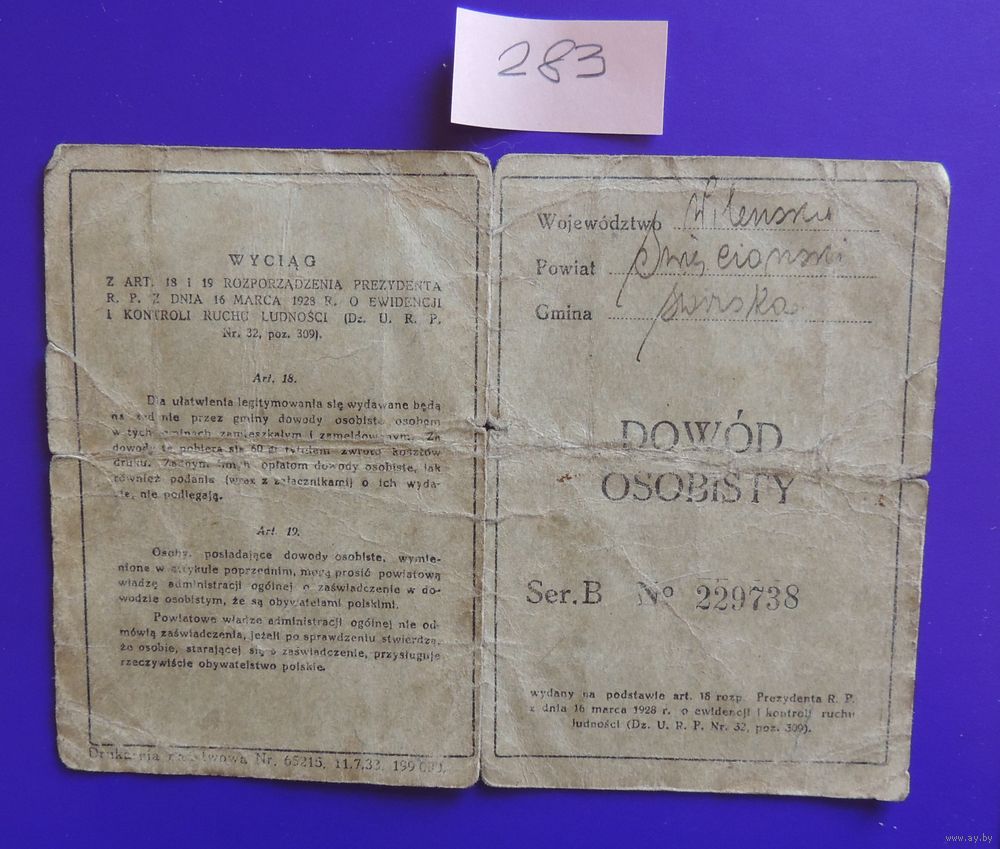 283
WYCIĄG
Z ART. 18 I 19 ROZPORZĄDZENIA PREZYDENTA
R. P. Z DNIA 16 MARCA 1928 R. O EWIDENCJI
I KONTROLI RUCHU LUDNOŚCI (Dz. U. R. P.
Nr. 32, poz. 309).
Art. 18.
Dla ułatwienia legitymowania się wydawane będą
na żądanie przez gminy dowody osobiste osobom
w tych gminach zamieszkałym i zameldowanym. Za
dowody te pobiera się 60 gr tytułem zwrotu kosztów
druku. Żadnym innym opłatom dowody osobiste, jak
również podania (wraz z załącznikami) o ich wyda-
nie, nie podlegają.
Art. 19.
Osoby, posiadające dowody osobiste, wymie-
nione w artykule poprzednim, mogą prosić powiatową
władzę administracji ogólnej o zaświadczenie w do-
wodzie osobistym, że są obywatelami polskimi.
Powiatowe władze administracji ogólnej nie od-
mówią zaświadczenia, jeżeli po sprawdzeniu stwierdzą,
że osobie, starającej się o zaświadczenie, przysługuje
rzeczywiście obywatelstwo polskie.
Drukarnia państwowa Nr. 65215. 11.7.33.
Województwo Wileńskie
Powiat Święciański
Gmina Świrska
DOWÓD
OSOBISTY
Ser. B № 229738
wydany na podstawie art. 18 rozp. Prezydenta R. P.
z dnia 16 marca 1928 r. o ewidencji i kontroli ruchu
ludności (Dz. U. R. P. Nr. 32, poz. 309).
www.ay.by